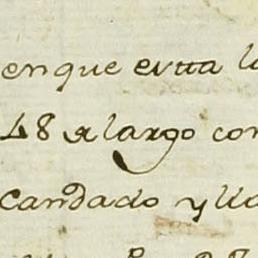 enque evita l
48 R largo con
candado y lla